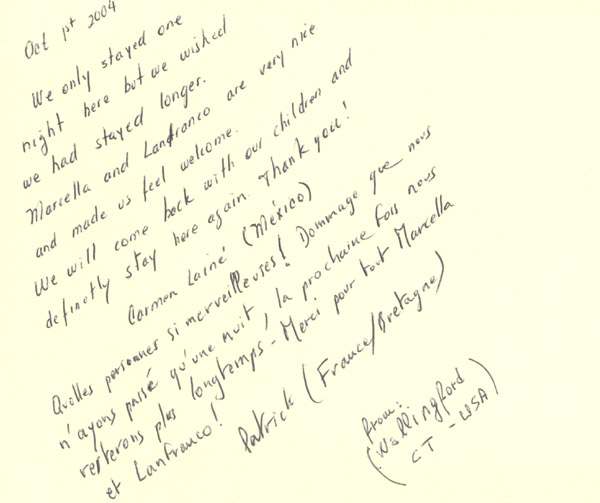 Oct 1st 2004
We only stayed one
night here but we wished
we had stayed longer.
Marcella and Lanfranco are very nice
and made us feel welcome.
We will come back with our children and
definetly stay here again. Thank you!
Carmen Lainé (México)
Quelles personnes si merveilleuses! Dommage que nous
n'ayons passé qu'une nuit, la prochaine fois nous
resterons plus longtemps - Merci pour tout Marcella
et Lanfranco!
Patrick (France/Bretagne)
From:
(Wallingford
CT - USA)